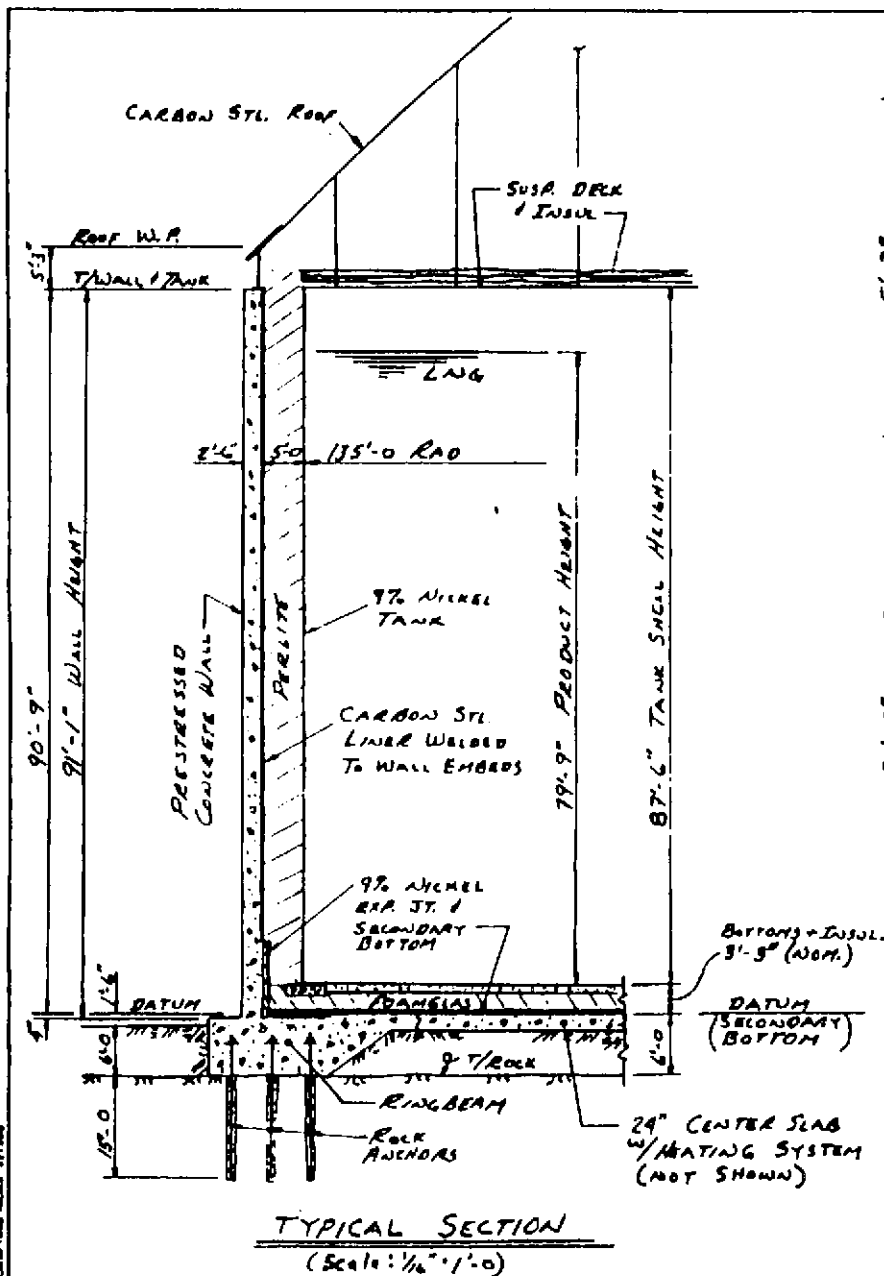 CARBON STL. ROOF
SUSP. DECK
& INSUL
ROOF W.P.
5'-3"
T/WALL & TANK
LNG
2'-6"
5'-0
135'-0 RAD
90'-9"
91'-1" WALL HEIGHT
PRESTRESSED
CONCRETE WALL
PERLITE
9% NICKEL
TANK
CARBON STL.
LINER WELDED
TO WALL EMBEDS
79'-9" PRODUCT HEIGHT
87'-6" TANK SHELL HEIGHT
9% NICKEL
EXP. JT. &
SECONDARY
BOTTOM
BOTTOMS + INSUL.
3'-3" (NOM.)
1'-6"
DATUM
FOAMGLAS
DATUM
(SECONDARY
BOTTOM)
4"
6'-0
6'-0
T/ROCK
RINGBEAM
15'-0
ROCK
ANCHORS
24" CENTER SLAB
W/HEATING SYSTEM
(NOT SHOWN)
TYPICAL SECTION
(Scale: 1/16" = 1'-0)